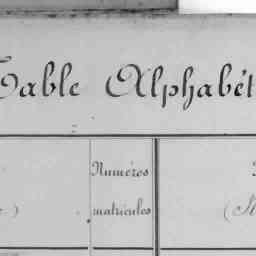 Table Alphabét
Numéros
matricules